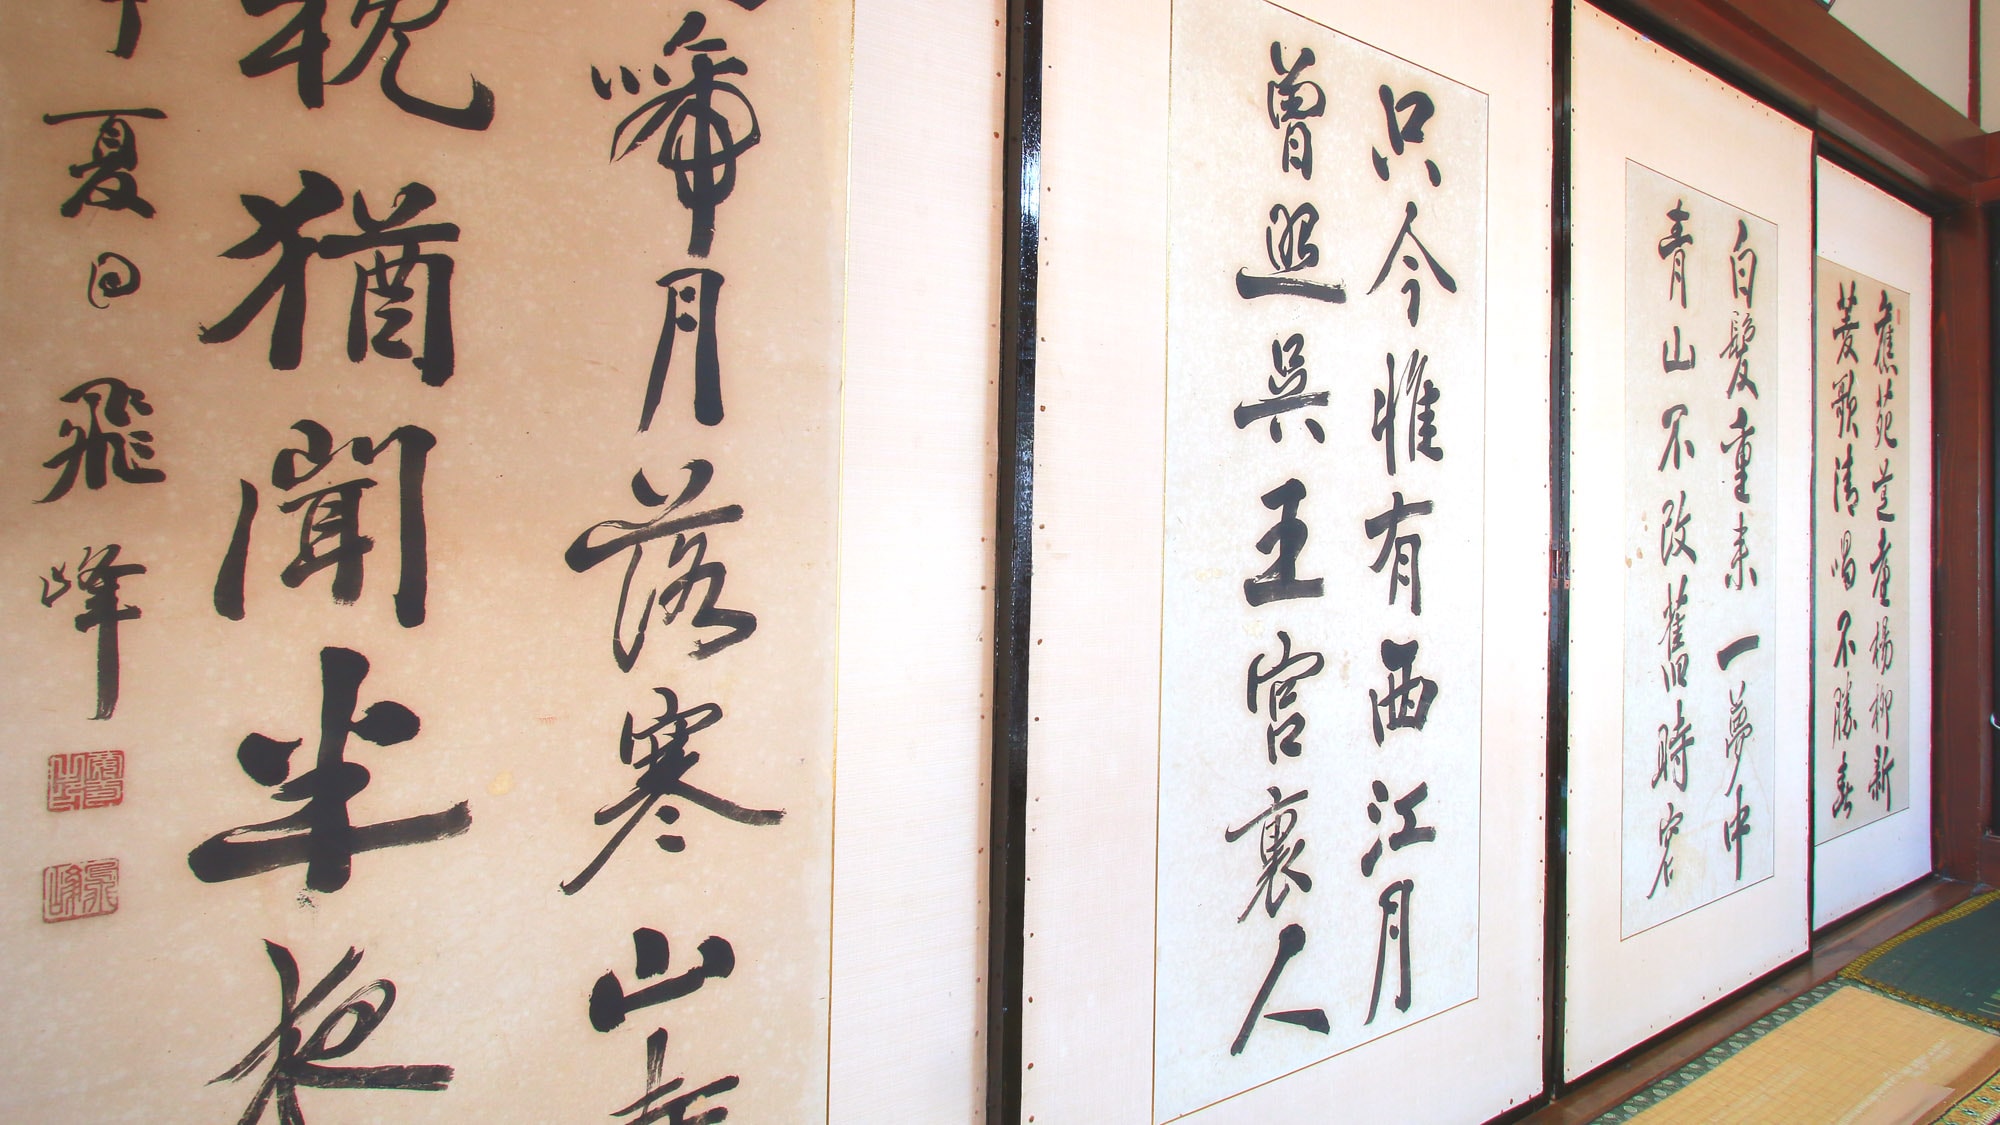 舊苑荒臺楊柳新
菱歌清唱不勝春
白髮重来一夢中
青山不改舊時容
只今惟有西江月
曾照吳王宮裏人
啼月落寒山寺
枕猶聞半夜
夏日飛峰